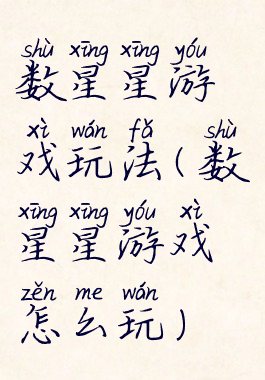 shù xīng xīng yóu
数星星游
xì wán fǎ shù
戏玩法(数
xīng xīng yóu xì
星星游戏
zěn me wán
怎么玩)